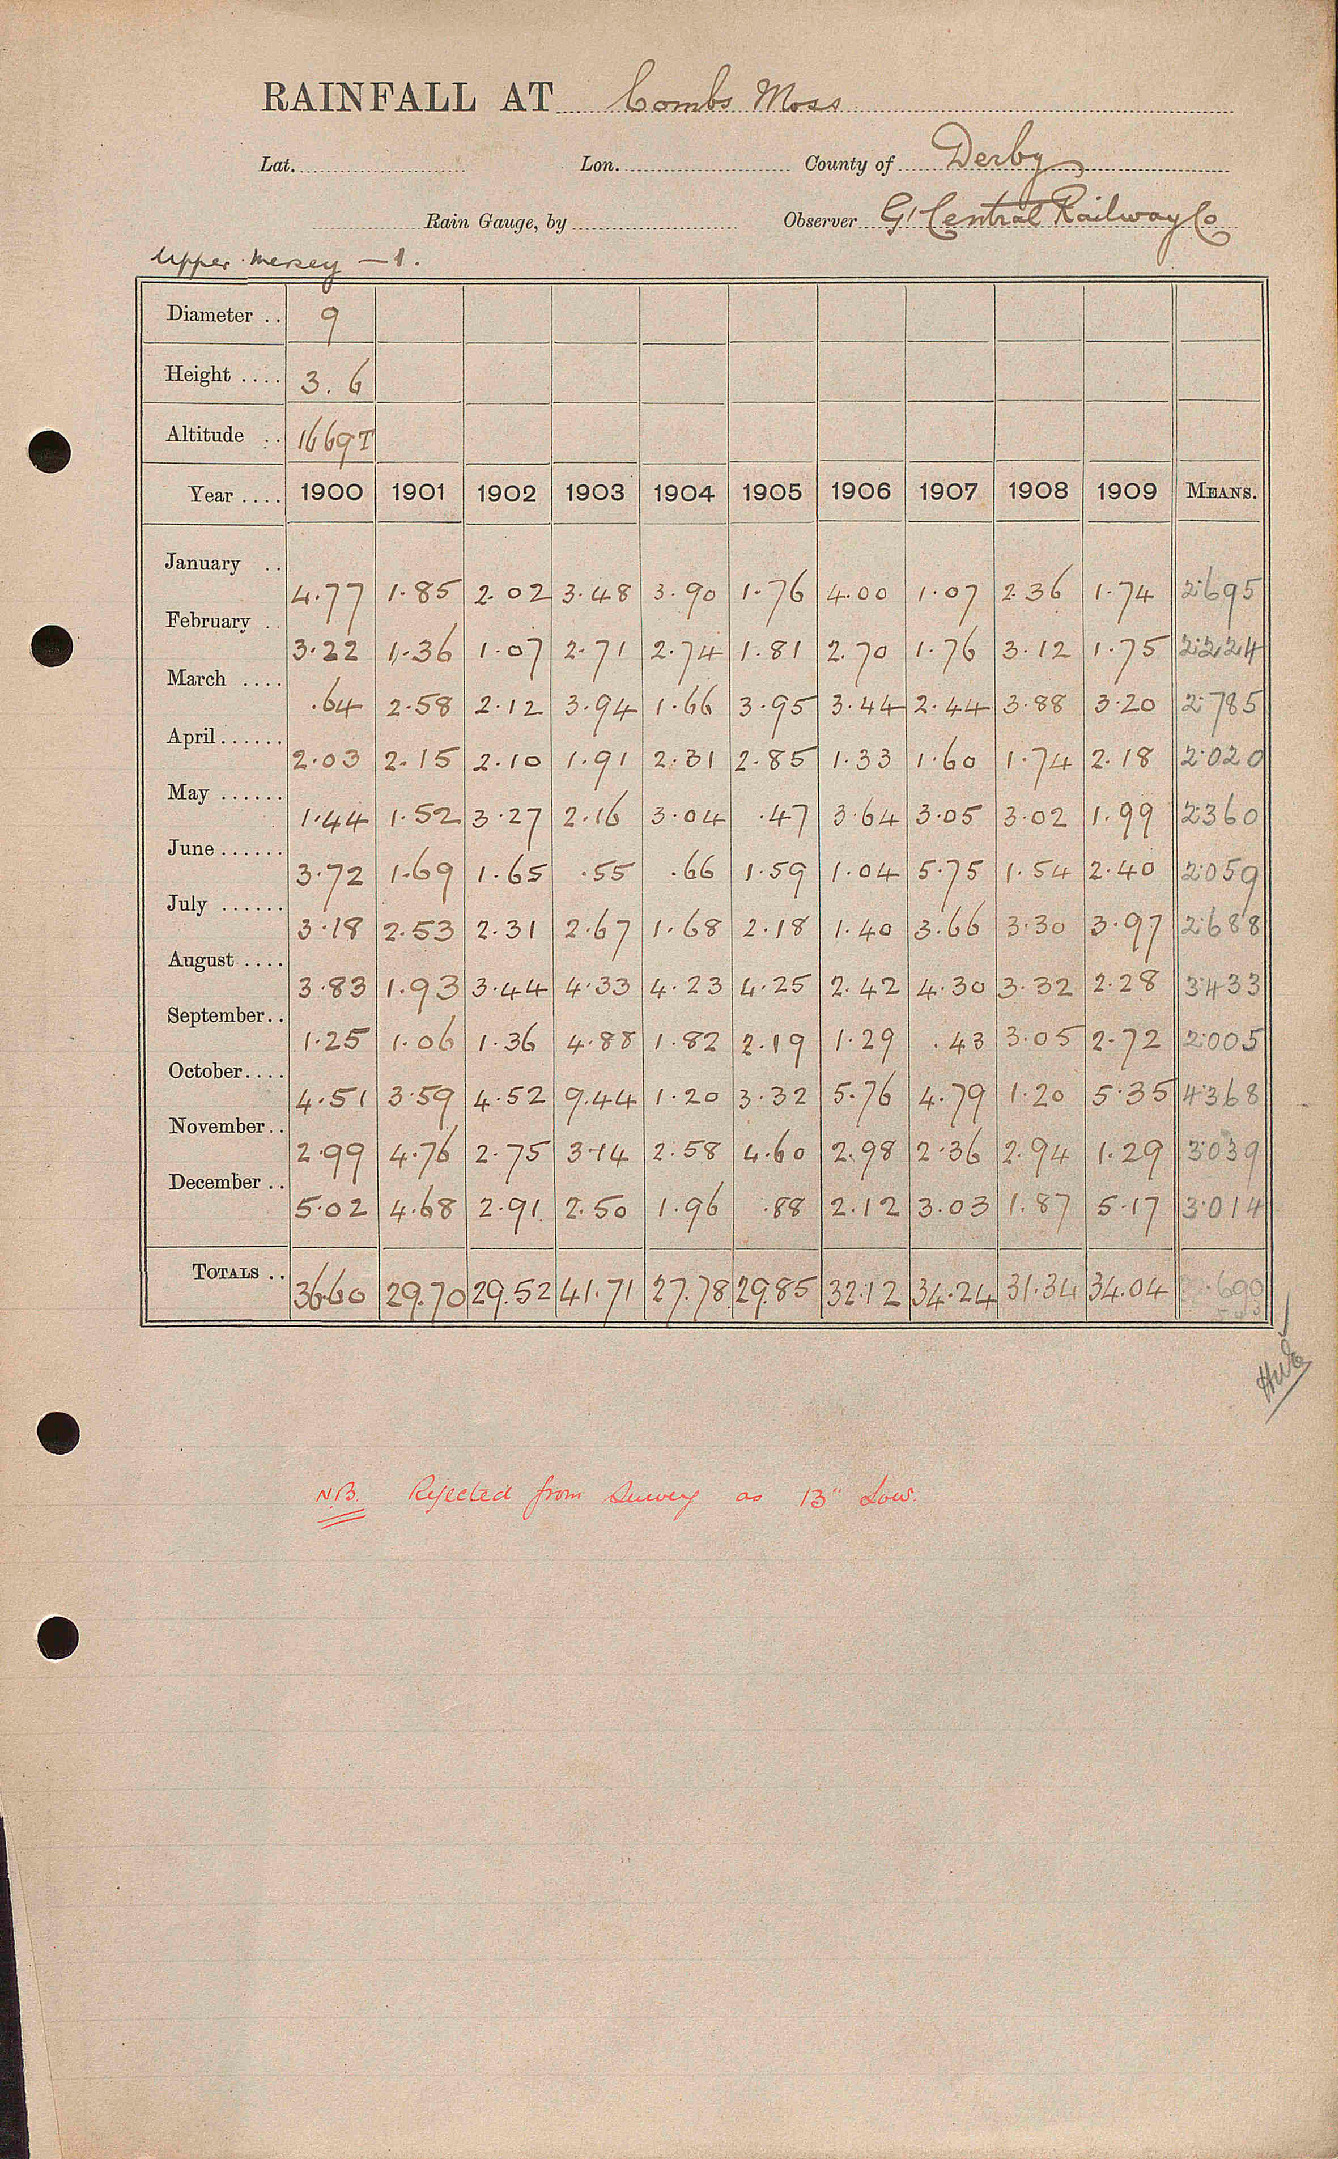 RAINFALL AT Combs Moss
Lat. Lon. County of Derby
Rain Gauge, by Observer Gt Central Railway Co
Upper Mersey — 1.
Diameter .. 9
Height .... 3. 6
Altitude .. 1669T
Year .... 1900 1901 1902 1903 1904 1905 1906 1907 1908 1909 MEANS.
January .. 4.77 1.85 2.02 3.48 3.90 1.76 4.00 1.07 2.36 1.74 2.695
February .. 3.22 1.36 1.07 2.71 2.74 1.81 2.70 1.76 3.12 1.75 2.224
March .... .64 2.58 2.12 3.94 1.66 3.95 3.44 2.44 3.88 3.20 2.785
April...... 2.03 2.15 2.10 1.91 2.31 2.85 1.33 1.60 1.74 2.18 2.020
May ...... 1.44 1.52 3.27 2.16 3.04 .47 3.64 3.05 3.02 1.99 2.360
June...... 3.72 1.69 1.65 .55 .66 1.59 1.04 5.75 1.54 2.40 2.059
July ...... 3.18 2.53 2.31 2.67 1.68 2.18 1.40 3.66 3.30 3.97 2.688
August .... 3.83 1.93 3.44 4.33 4.23 4.25 2.42 4.30 3.32 2.28 3.433
September.. 1.25 1.06 1.36 4.88 1.82 2.19 1.29 .43 3.05 2.72 2.005
October.... 4.51 3.59 4.52 9.44 1.20 3.32 5.76 4.79 1.20 5.35 4.368
November.. 2.99 4.76 2.75 3.14 2.58 4.60 2.98 2.36 2.94 1.29 3.039
December .. 5.02 4.68 2.91 2.50 1.96 .88 2.12 3.03 1.87 5.17 3.014
TOTALS .. 36.60 29.70 29.52 41.71 27.78 29.85 32.12 34.24 31.34 34.04
N.B. Rejected from Survey as 13" Low.